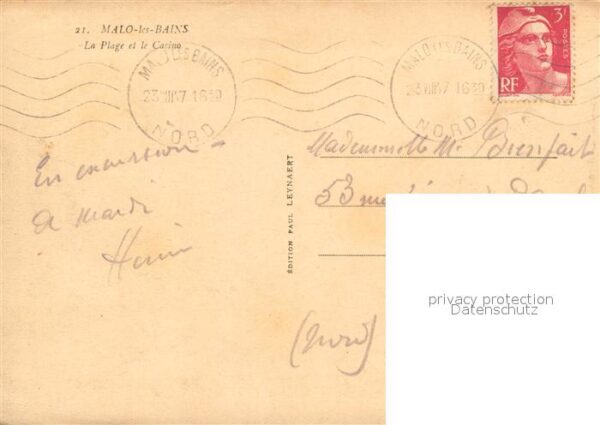 21. MALO-les-BAINS
La Plage et le Casino
MALO LES BAINS
23 VIII 47 1630
NORD
MALO LES BAINS
23 VIII 47 1630
NORD
3F
POSTES
RF
En excursion
A mardi
Mademoiselle M. Bienfait
53
(Nord)
ÉDITION PAUL LEYNAERT
privacy protection
Datenschutz